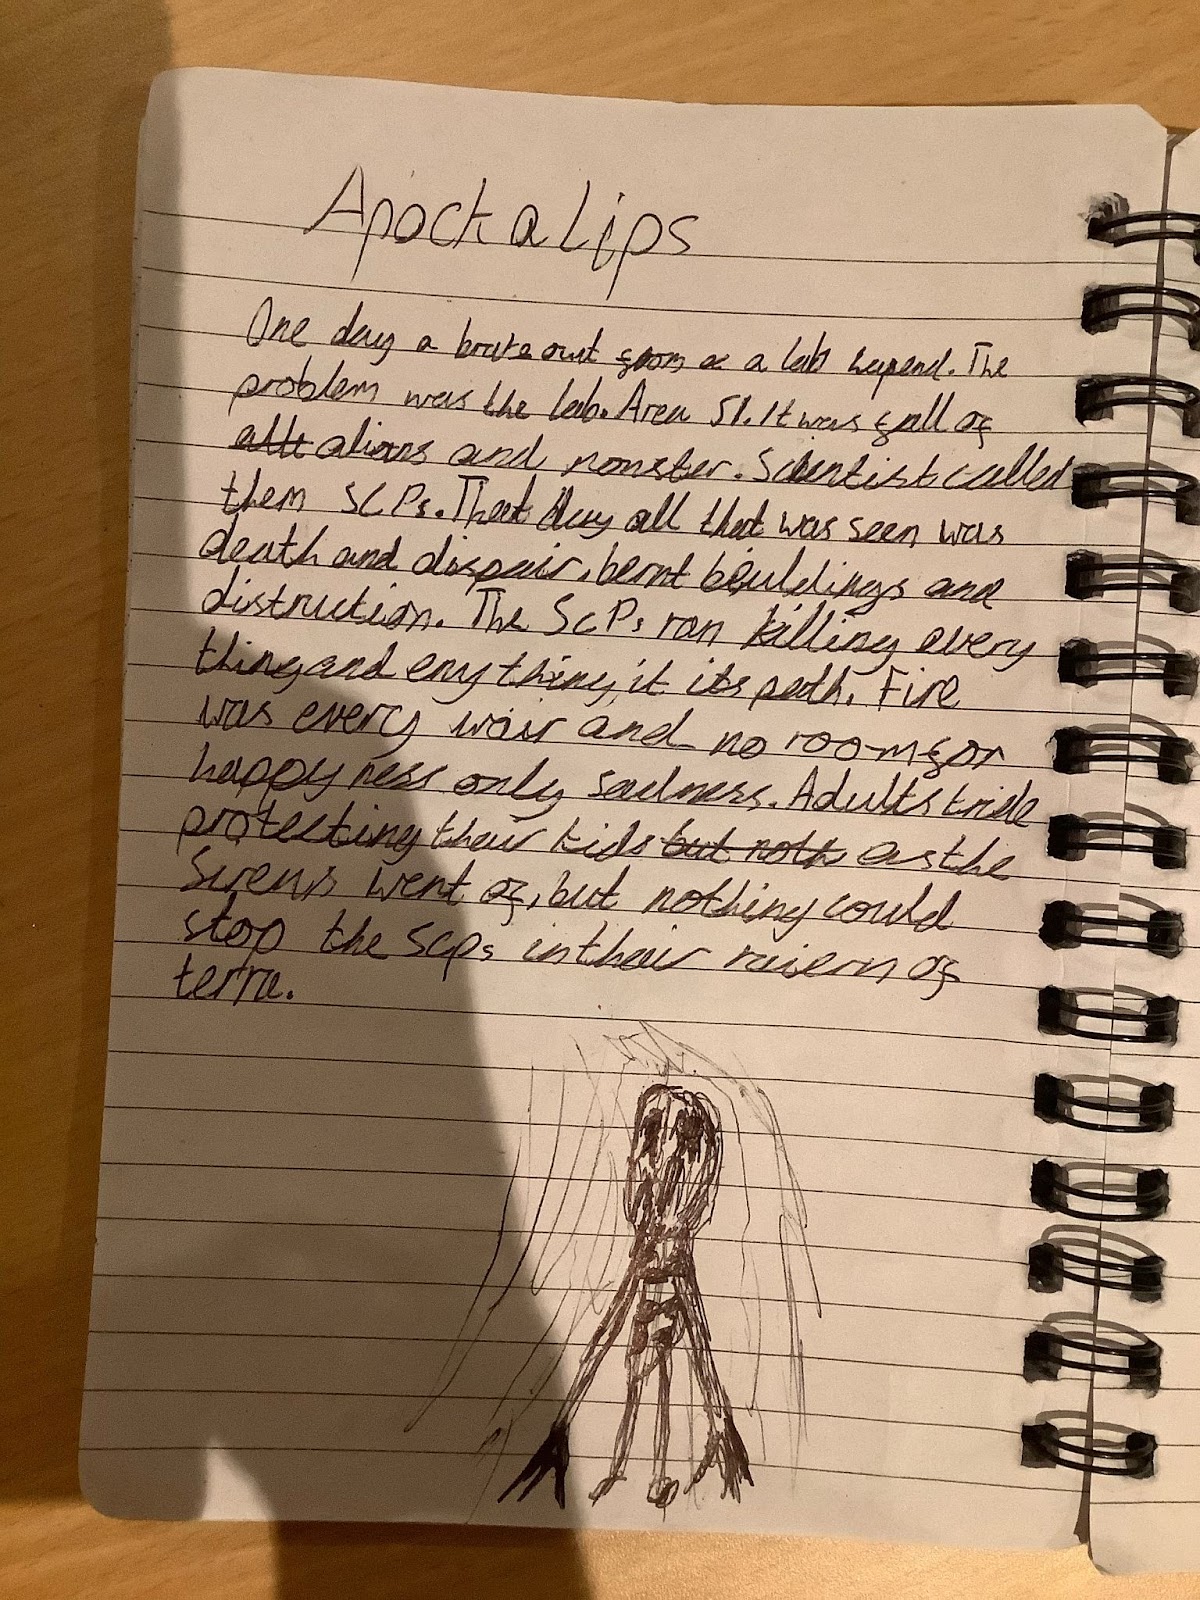 Apockalips
One day a brake out from a a lab hapend. The
problem was the lab. Area 51. It was full of
alians and monster. Scientist called
them SCPs. That day all that was seen was
death and dispair, bernt beuldings and
distruction. The SCPs ran killing every
thing and eny thing it its path. Fire
was every wair and no room for
happy ness only sadness. Adults tride
protecting their kids but noth as the
Sirens went of, but nothing could
stop the SCPs in thair raiern of
terra.